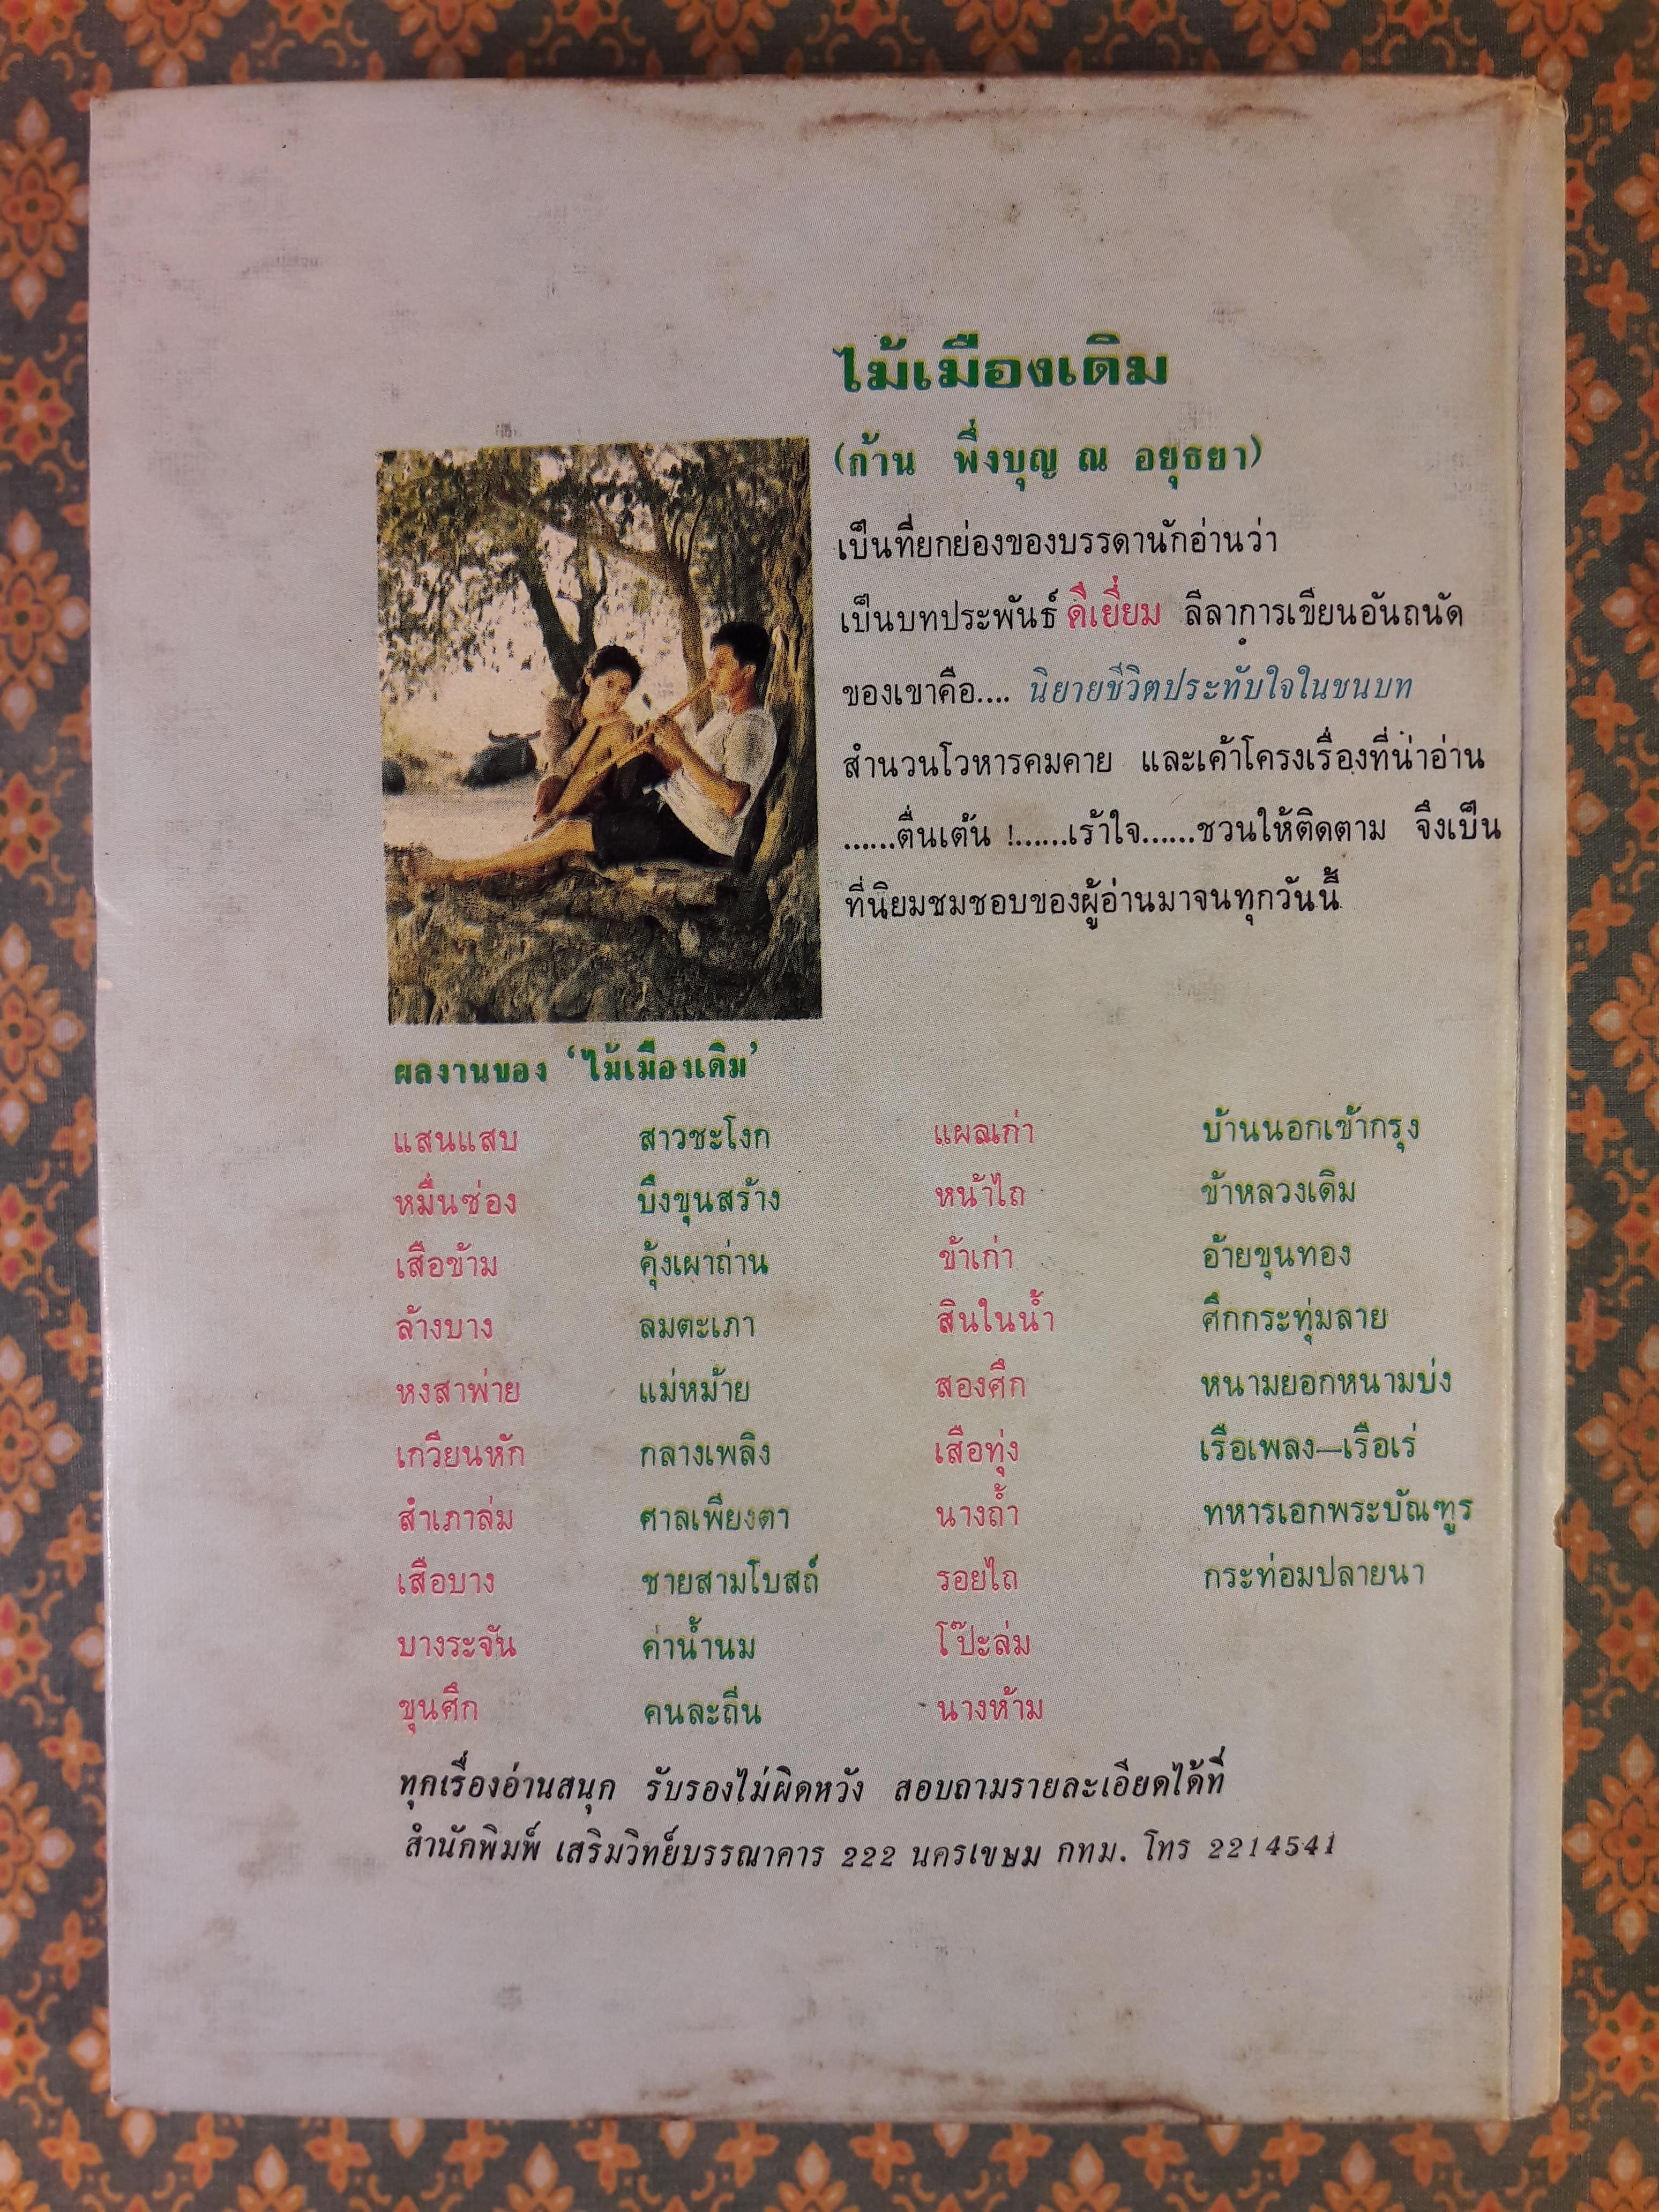 ไม้เมืองเดิม
(ก้าน พึ่งบุญ ณ อยุธยา)
เป็นที่ยกย่องของบรรดานักอ่านว่า
เป็นบทประพันธ์ ดีเยี่ยม ลีลาการเขียนอันถนัด
ของเขาคือ.... นิยายชีวิตประทับใจในชนบท
สำนวนโวหารคมคาย และเค้าโครงเรื่องที่น่าอ่าน
......ตื่นเต้น !......เร้าใจ......ชวนให้ติดตาม จึงเป็น
ที่นิยมชมชอบของผู้อ่านมาจนทุกวันนี้
ผลงานของ ‘ไม้เมืองเดิม’
แสนแสบ สาวชะโงก แผลเก่า บ้านนอกเข้ากรุง
หมื่นซ่อง บึงขุนสร้าง หน้าไถ ข้าหลวงเดิม
เสือข้าม คุ้งเผาถ่าน ข้าเก่า อ้ายขุนทอง
ล้างบาง ลมตะเภา สินในน้ำ ศึกกระทุ่มลาย
หงสาพ่าย แม่หม้าย สองศึก หนามยอกหนามบ่ง
เกวียนหัก กลางเพลิง เสือทุ่ง เรือเพลง—เรือเร่
สำเภาล่ม ศาลเพียงตา นางถ้ำ ทหารเอกพระบัณฑูร
เสือบาง ชายสามโบสถ์ รอยไถ กระท่อมปลายนา
บางระจัน ค่าน้ำนม โป๊ะล่ม
ขุนศึก คนละถีน นางห้าม
ทุกเรื่องอ่านสนุก รับรองไม่ผิดหวัง สอบถามรายละเอียดได้ที่
สำนักพิมพ์ เสริมวิทย์บรรณาคาร 222 นครเขษม กทม. โทร 2214541